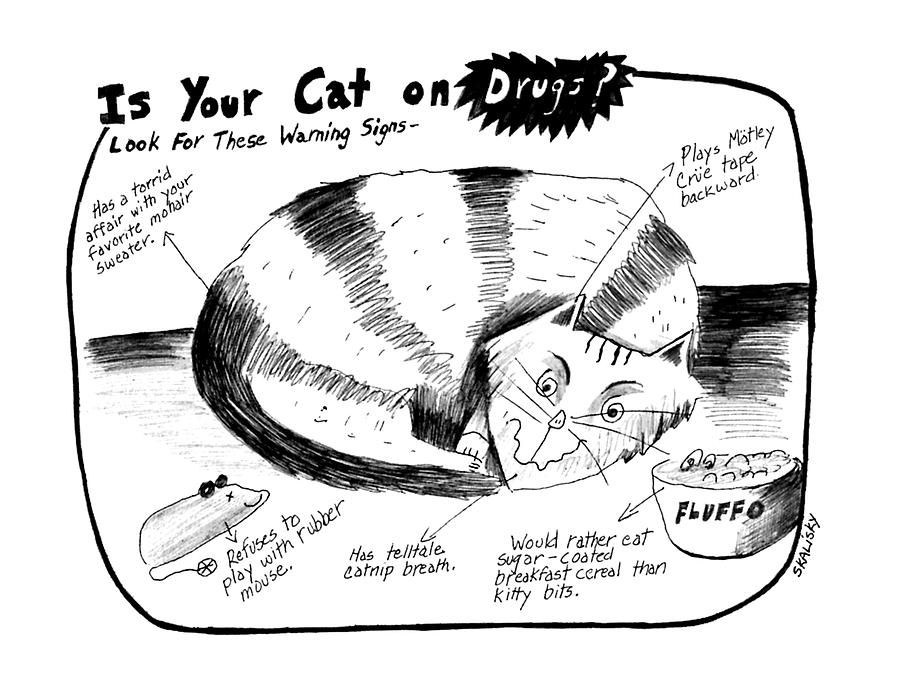 Is Your Cat on Drugs?
Look For These Warning Signs-
Has a torrid
affair with your
favorite mohair
sweater.
Plays Mötley
Crüe tape
backward.
Refuses to
play with rubber
mouse.
Has telltale
catnip breath.
Would rather eat
sugar-coated
breakfast cereal than
kitty bits.
FLUFFO
SKALISKY